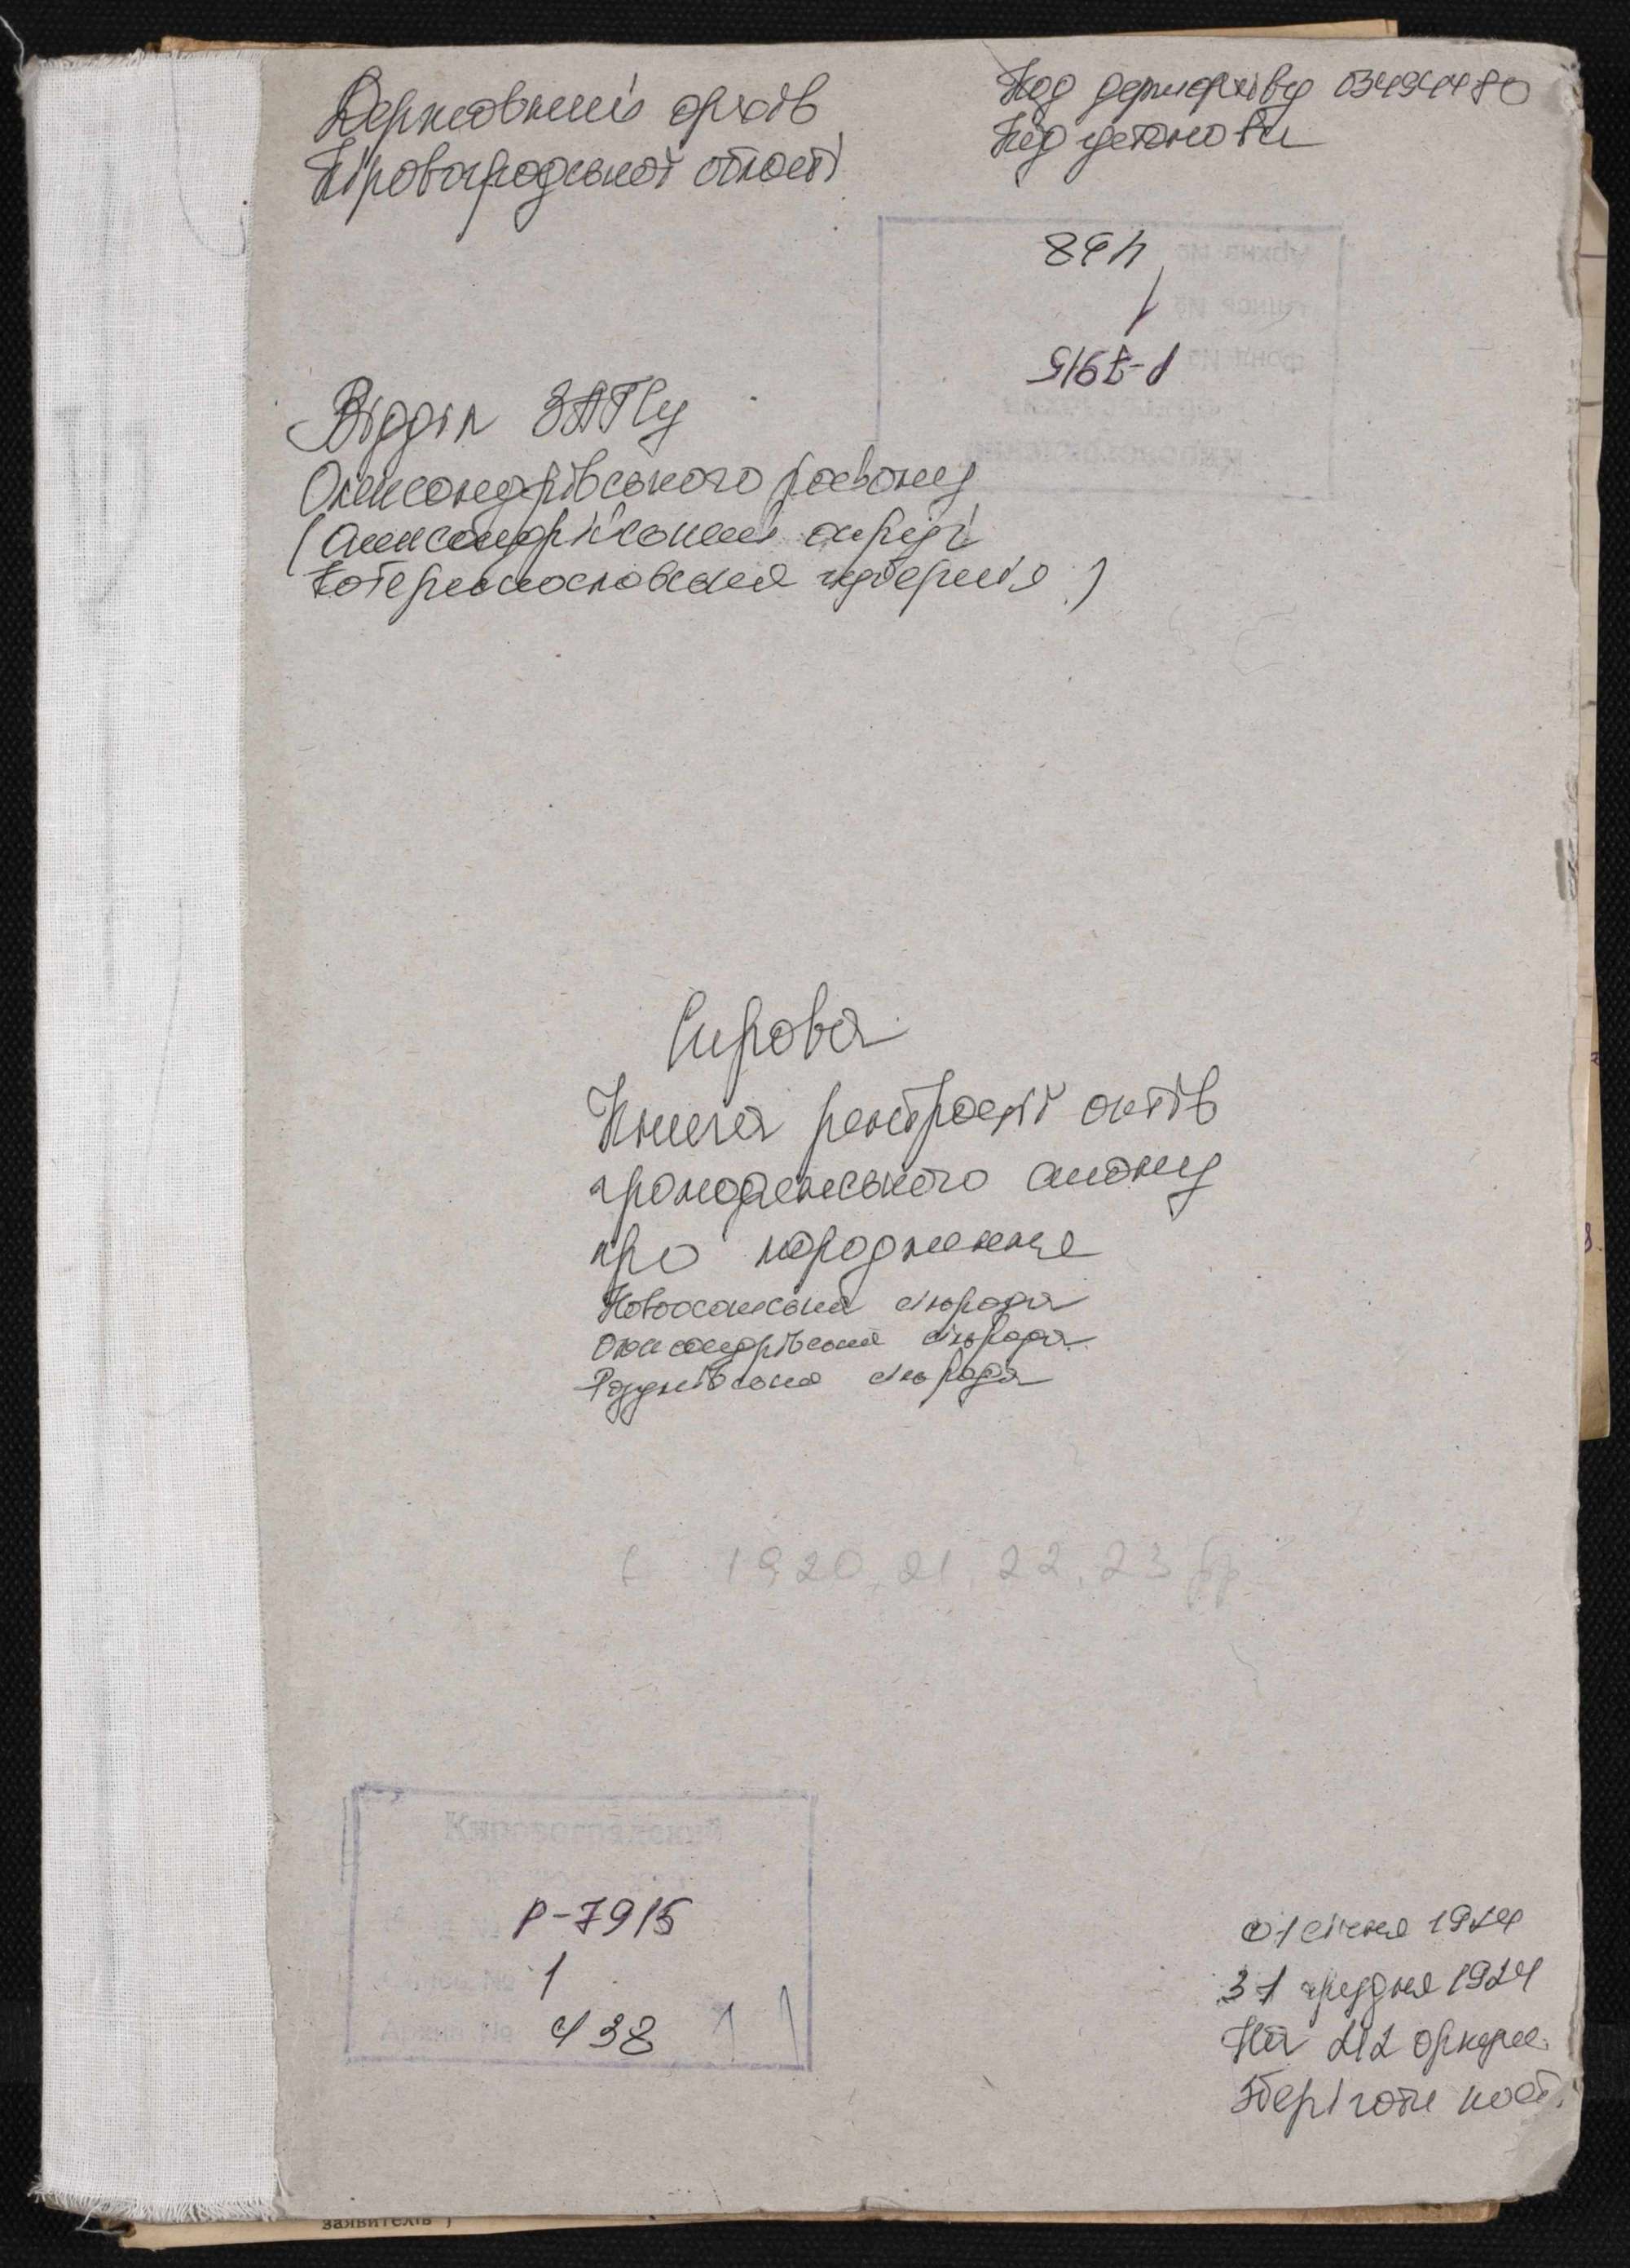 Державний архів
Кіровоградської області
Код держархіву 03494480
Код установи
438
1
Р-7915
Відділ ЗАГСу
Олександрівського району
(Олександрійський округ
Катеринославська губернія)
Справа
Книга реєстрації актів
громадянського стану
про народження
сільрада
Олександрівська сільрада
сільрада
1920, 21, 22, 23 рр
Кировоградский
Р-7915
Опись № 1
Архив № 438
01 січня 1924
31 грудня 1924
На 212 аркуш.
Зберігати пост.
заявителів)